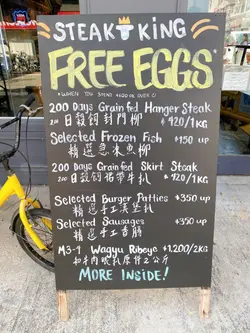 STEAK KING
FREE EGGS*
*WHEN YOU SPEND $400 OR OVER
200 Days Grain fed Hanger Steak
200日穀飼封門柳 $420/1KG
Selected Frozen Fish $150 up
精選急凍魚柳
200 Days Grain fed Skirt Steak
200日穀飼裙帶牛扒 $420/1KG
Selected Burger Patties $350 up
精選手工漢堡扒
Selected Sausages $350 up
精選手工香腸
M3-4 Wagyu Ribeye $1,200/2KG
和牛肉眼
MORE INSIDE!